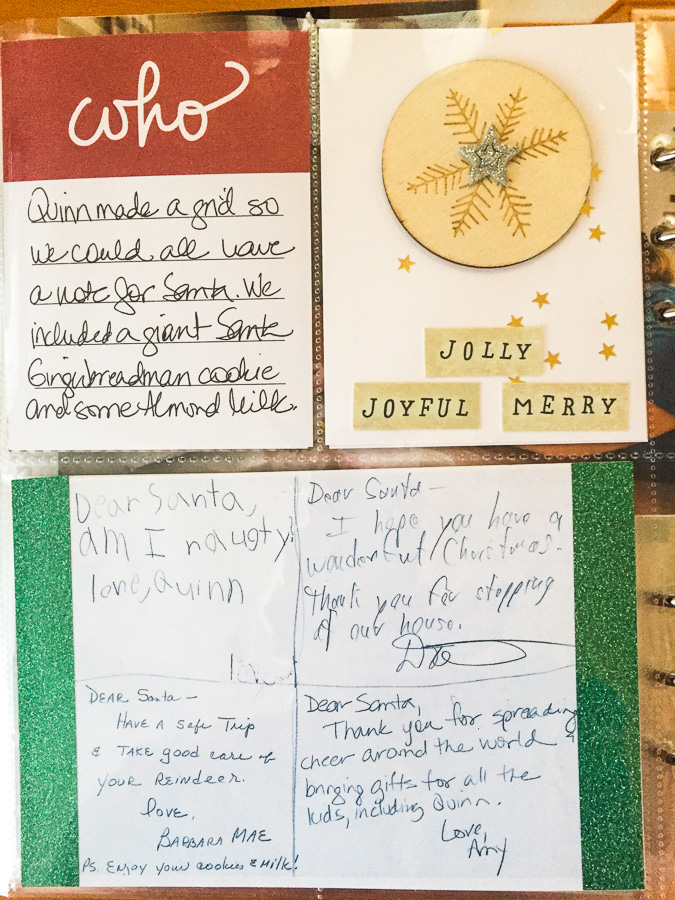 who
Quinn made a grid so
we could all have
a note for Santa. We
included a giant Santa
Gingerbreadman cookie
and some Almond Milk.
JOLLY
JOYFUL MERRY
Dear Santa,
am I naughty?
love, Quinn
Dear Santa-
I hope you have a
wonderful Christmas.
Thank you for stopping
at our house.
DEAR Santa-
HAVE A Safe Trip
& TAKE good care of
YOUR REINDEER.
love,
BARBARA MAE
PS. ENJOY YOUR cookies & Milk!
Dear Santa,
Thank you for spreading
cheer around the world &
bringing gifts for all the
kids, including Quinn.
Love,
Amy